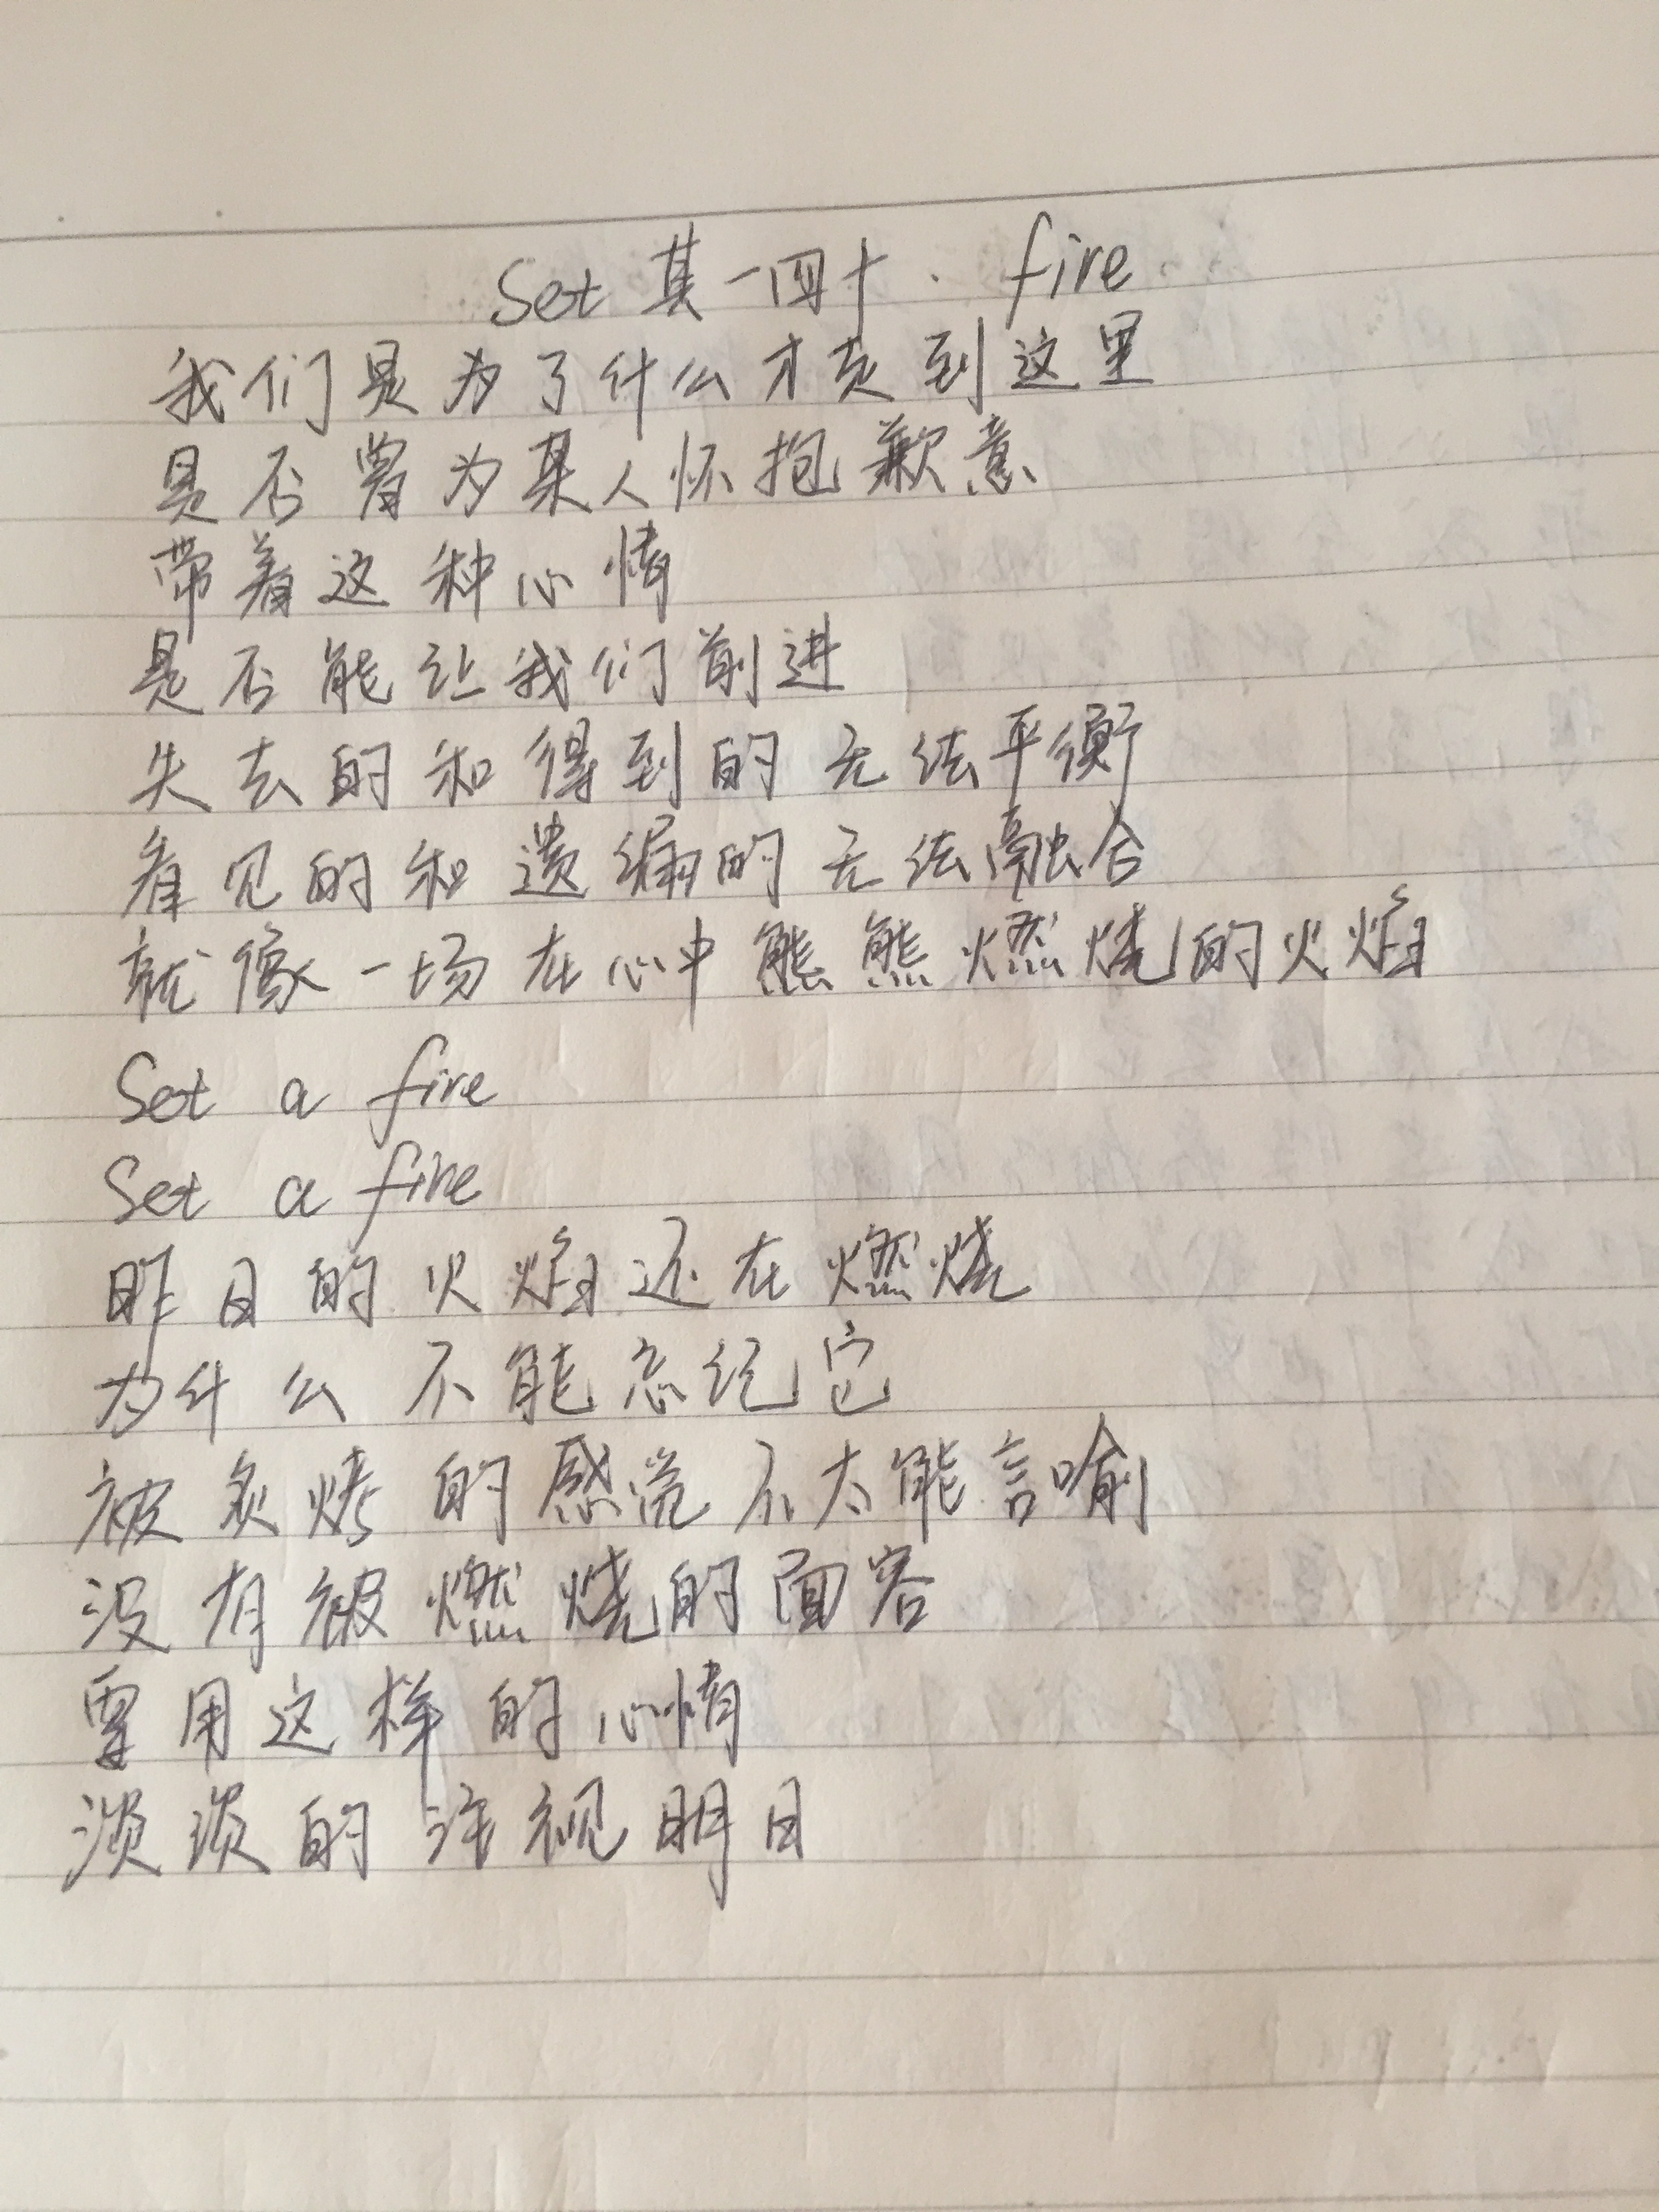 Set 其一四十· fire
我们是为了什么才走到这里
是否曾为某人怀抱歉意
带着这种心情
是否能让我们前进
失去的和得到的无法平衡
看见的和遗漏的无法融合
就像一场在心中熊熊燃烧的火焰
Set a fire
Set a fire
昨日的火焰还在燃烧
为什么不能忘记它
被炙烤的感觉不太能言喻
没有被燃烧的面容
要用这样的心情
淡淡的注视明日